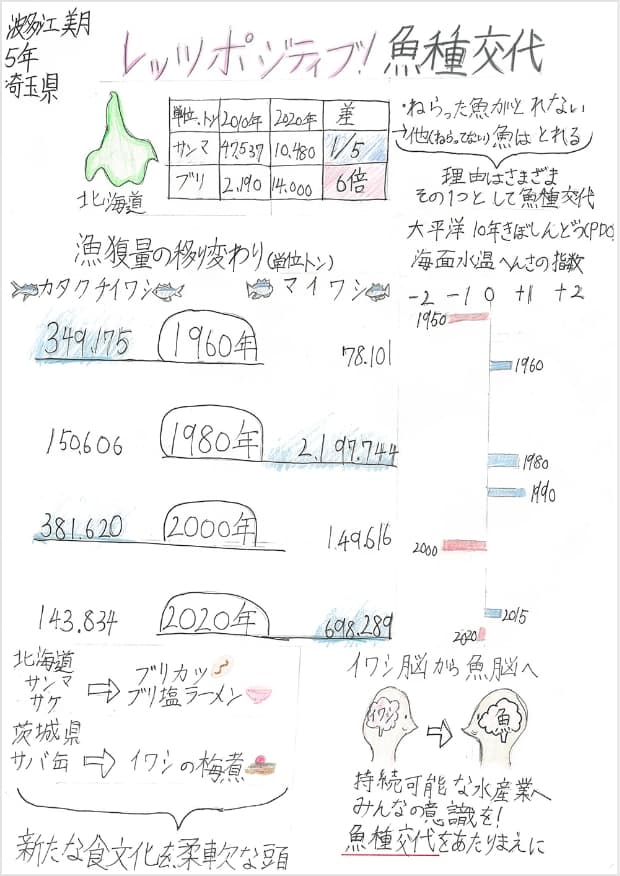 波多江 美月
5年
埼玉県
レッツポジティブ! 魚種交代
単位.トン 2010年 2020年 差
サンマ 47,537 10,480 1/5
ブリ 2.190 14.000 6倍
北海道
・ねらった魚がとれない
→他(ねらってない)魚はとれる
理由はさまざま
その1つとして魚種交代
太平洋10年きぼしんどう(PDO)
海面水温へんさの指数
漁獲量の移り変わり(単位トン)
カタクチイワシ マイワシ
349.175 1960年 78.101
150.606 1980年 2.197.744
381.620 2000年 149.616
143.834 2020年 698.289
-2 -1 0 +1 +2
1950
1960
1980
1990
2000
2015
2020
北海道
サンマ
サケ
ブリカツ
ブリ塩ラーメン
茨城県
サバ缶 イワシの梅煮
新たな食文化を柔軟な頭
イワシ脳から魚脳へ
イワシ 魚
持続可能な水産業へ
みんなの意識を!
魚種交代をあたりまえに